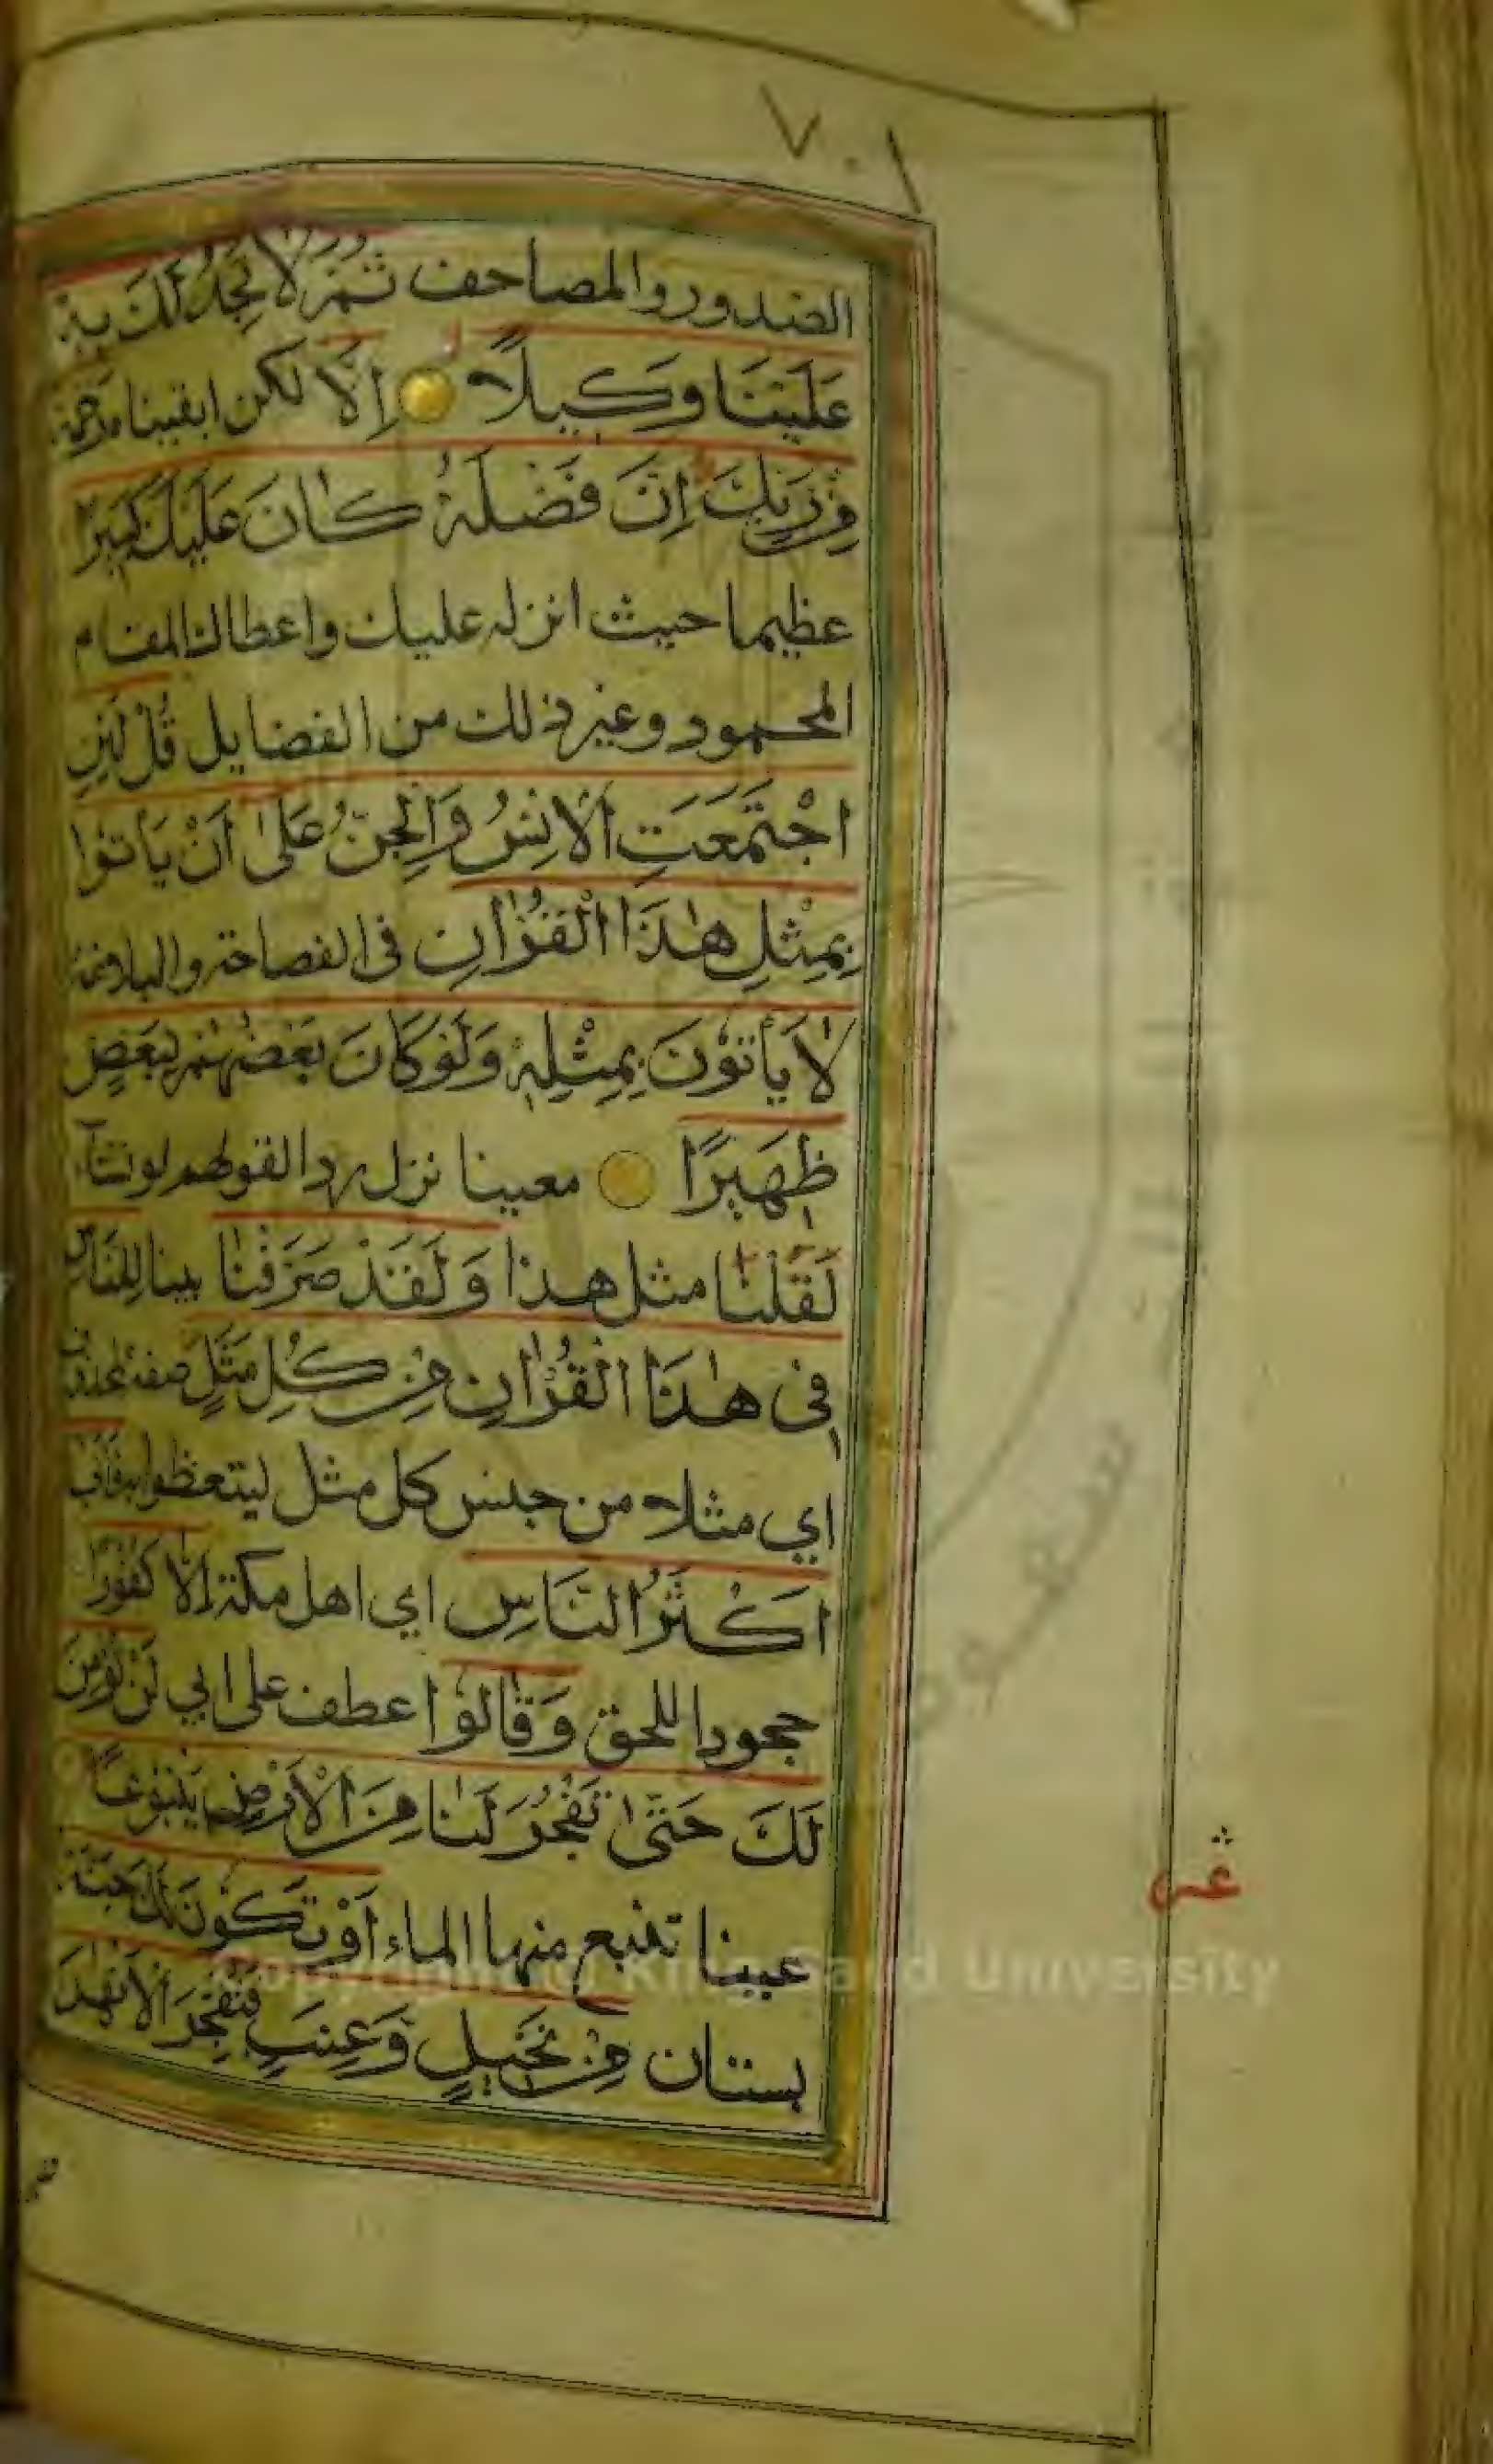 ٧٠١
الصدور والمصاحف ثُمَّ لَا تَجِدُ لَكَ بِهٖ
عَلَيْنَا وَكِيلًا اِلَّا لكن ابقيناه رَحْمَةً
مِنْ رَبِّكَ اِنَّ فَضْلَهُ كَانَ عَلَيْكَ كَبِيرًا
عظيما حيث انزله عليك واعطاك المقام
المحمود وغير ذلك من الفضايل قُلْ لَئِنِ
اجْتَمَعَتِ الْاِنْسُ وَالْجِنُّ عَلٰى اَنْ يَاْتُوا
بِمِثْلِ هٰذَا الْقُرْاٰنِ فى الفصاحة والبلاغة
لَا يَاْتُونَ بِمِثْلِهٖ وَلَوْ كَانَ بَعْضُهُمْ لِبَعْضٍ
ظَهِيرًا معينا نزل ردا لقولهم لو نشآء
لَقُلْنَا مثل هذا وَلَقَدْ صَرَّفْنَا بينا لِلنَّاسِ
فِى هٰذَا الْقُرْاٰنِ مِنْ كُلِّ مَثَلٍ صفة لمحذوف
اي مثلا من جنس كل مثل ليتعظوا فَاَبٰى
اَكْثَرُ النَّاسِ اي اهل مكة اِلَّا كُفُورًا
جحودا للحق وَقَالُوا عطف على ابي لَنْ نُؤْمِنَ
لَكَ حَتّٰى تَفْجُرَ لَنَا مِنَ الْاَرْضِ يَنْبُوعًا
عينا تنبع منها الماء اَوْ تَكُونَ لَكَ جَنَّةٌ
بستان مِنْ نَخِيلٍ وَعِنَبٍ فَتُفَجِّرَ الْاَنْهَارَ
Copyright © King Saud University